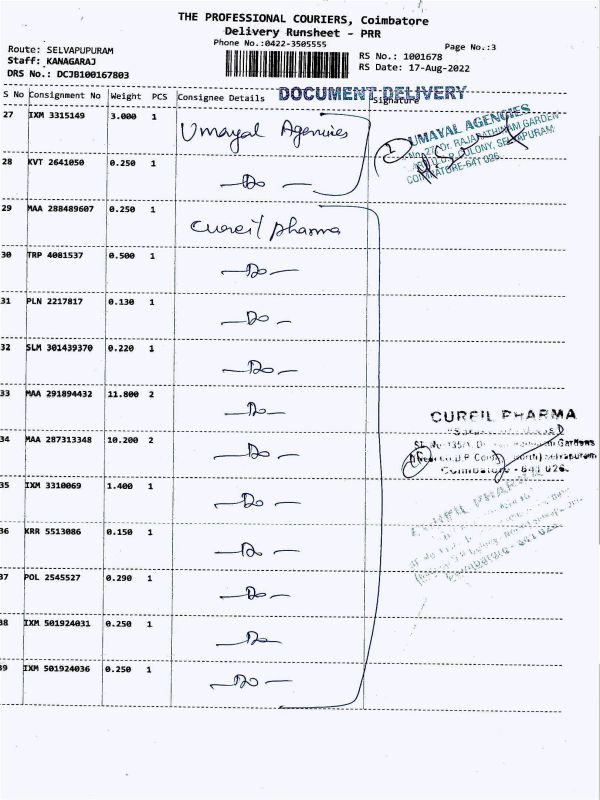 THE PROFESSIONAL COURIERS, Coimbatore
Delivery Runsheet - PRR
Phone No.:0422-3505555
Page No.:3
Route: SELVAPUPURAM
Staff: KANAGARAJ
DRS No.: DCJB100167803
RS No.: 1001678
RS Date: 17-Aug-2022
S No Consignment No Weight PCS Consignee Details Signature
DOCUMENT DELIVERY
27 IXM 3315149 3.000 1 Umayal Agencies
UMAYAL AGENCIES
No. 27, Dr. RAJARATHINAM GARDEN
COLONY, SELVAPURAM,
COIMBATORE-641 026.
28 KVT 2641050 0.250 1 —Do—
29 MAA 288489607 0.250 1 Cureil pharma
30 TRP 4081537 0.500 1 —Do—
31 PLN 2217817 0.130 1 —Do—
32 SLM 301439370 0.220 1 —Do—
33 MAA 291894432 11.800 2 —Do—
CUREIL PHARMA
34 MAA 287313348 10.200 2 —Do—
Gardens
Selvapuram
Coimbatore - 641 026.
35 IXM 3310069 1.400 1 —Do—
36 KRR 5513086 0.150 1 —Do—
37 POL 2545527 0.290 1 —Do—
38 IXM 501924031 0.250 1 —Do—
39 IXM 501924036 0.250 1 —Do—